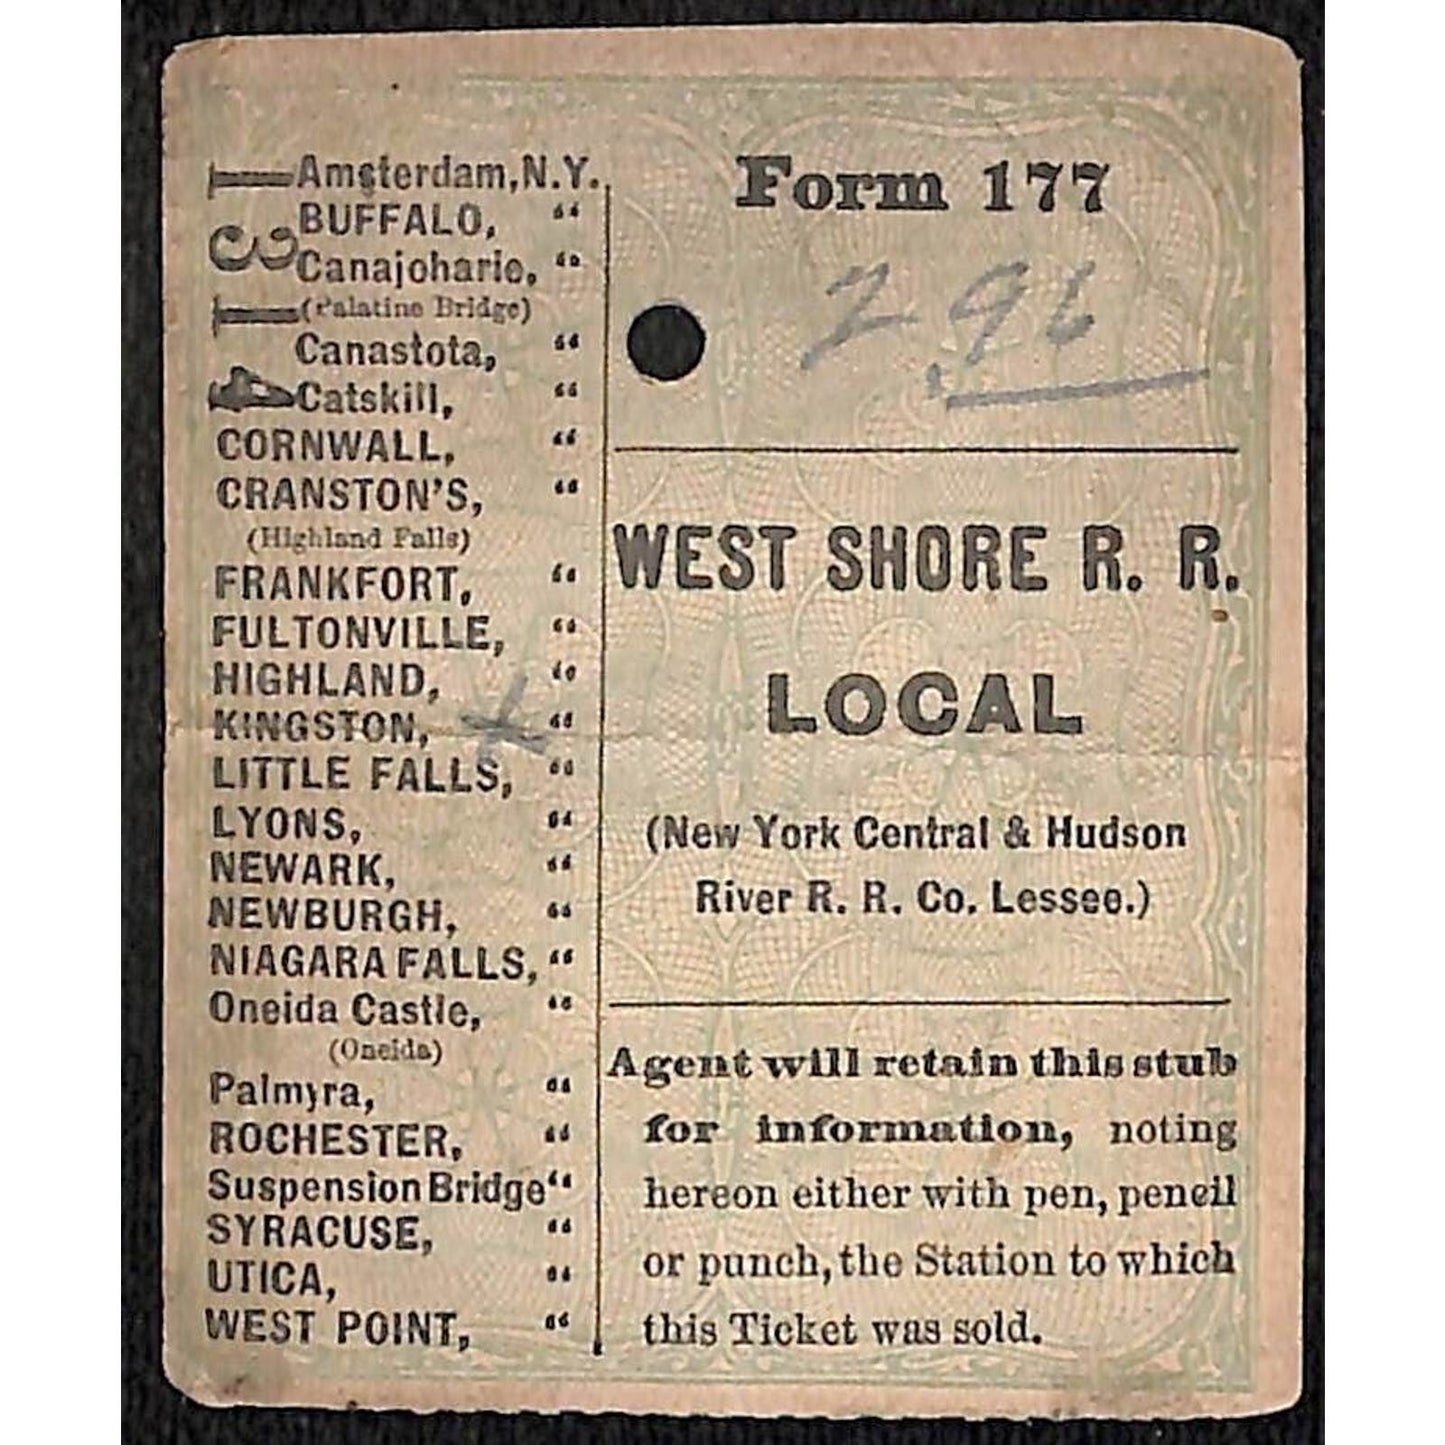 Amsterdam, N.Y.
BUFFALO, "
Canajoharie, "
(Palatine Bridge)
Canastota, "
Catskill, "
CORNWALL, "
CRANSTON'S, "
(Highland Falls)
FRANKFORT, "
FULTONVILLE, "
HIGHLAND, "
KINGSTON, "
LITTLE FALLS, "
LYONS, "
NEWARK, "
NEWBURGH, "
NIAGARA FALLS, "
Oneida Castle, "
(Oneida)
Palmyra, "
ROCHESTER, "
Suspension Bridge "
SYRACUSE, "
UTICA, "
WEST POINT, "
Form 177
2.96
WEST SHORE R. R.
LOCAL
(New York Central & Hudson
River R. R. Co. Lessee.)
Agent will retain this stub
for information, noting
hereon either with pen, pencil
or punch, the Station to which
this Ticket was sold.